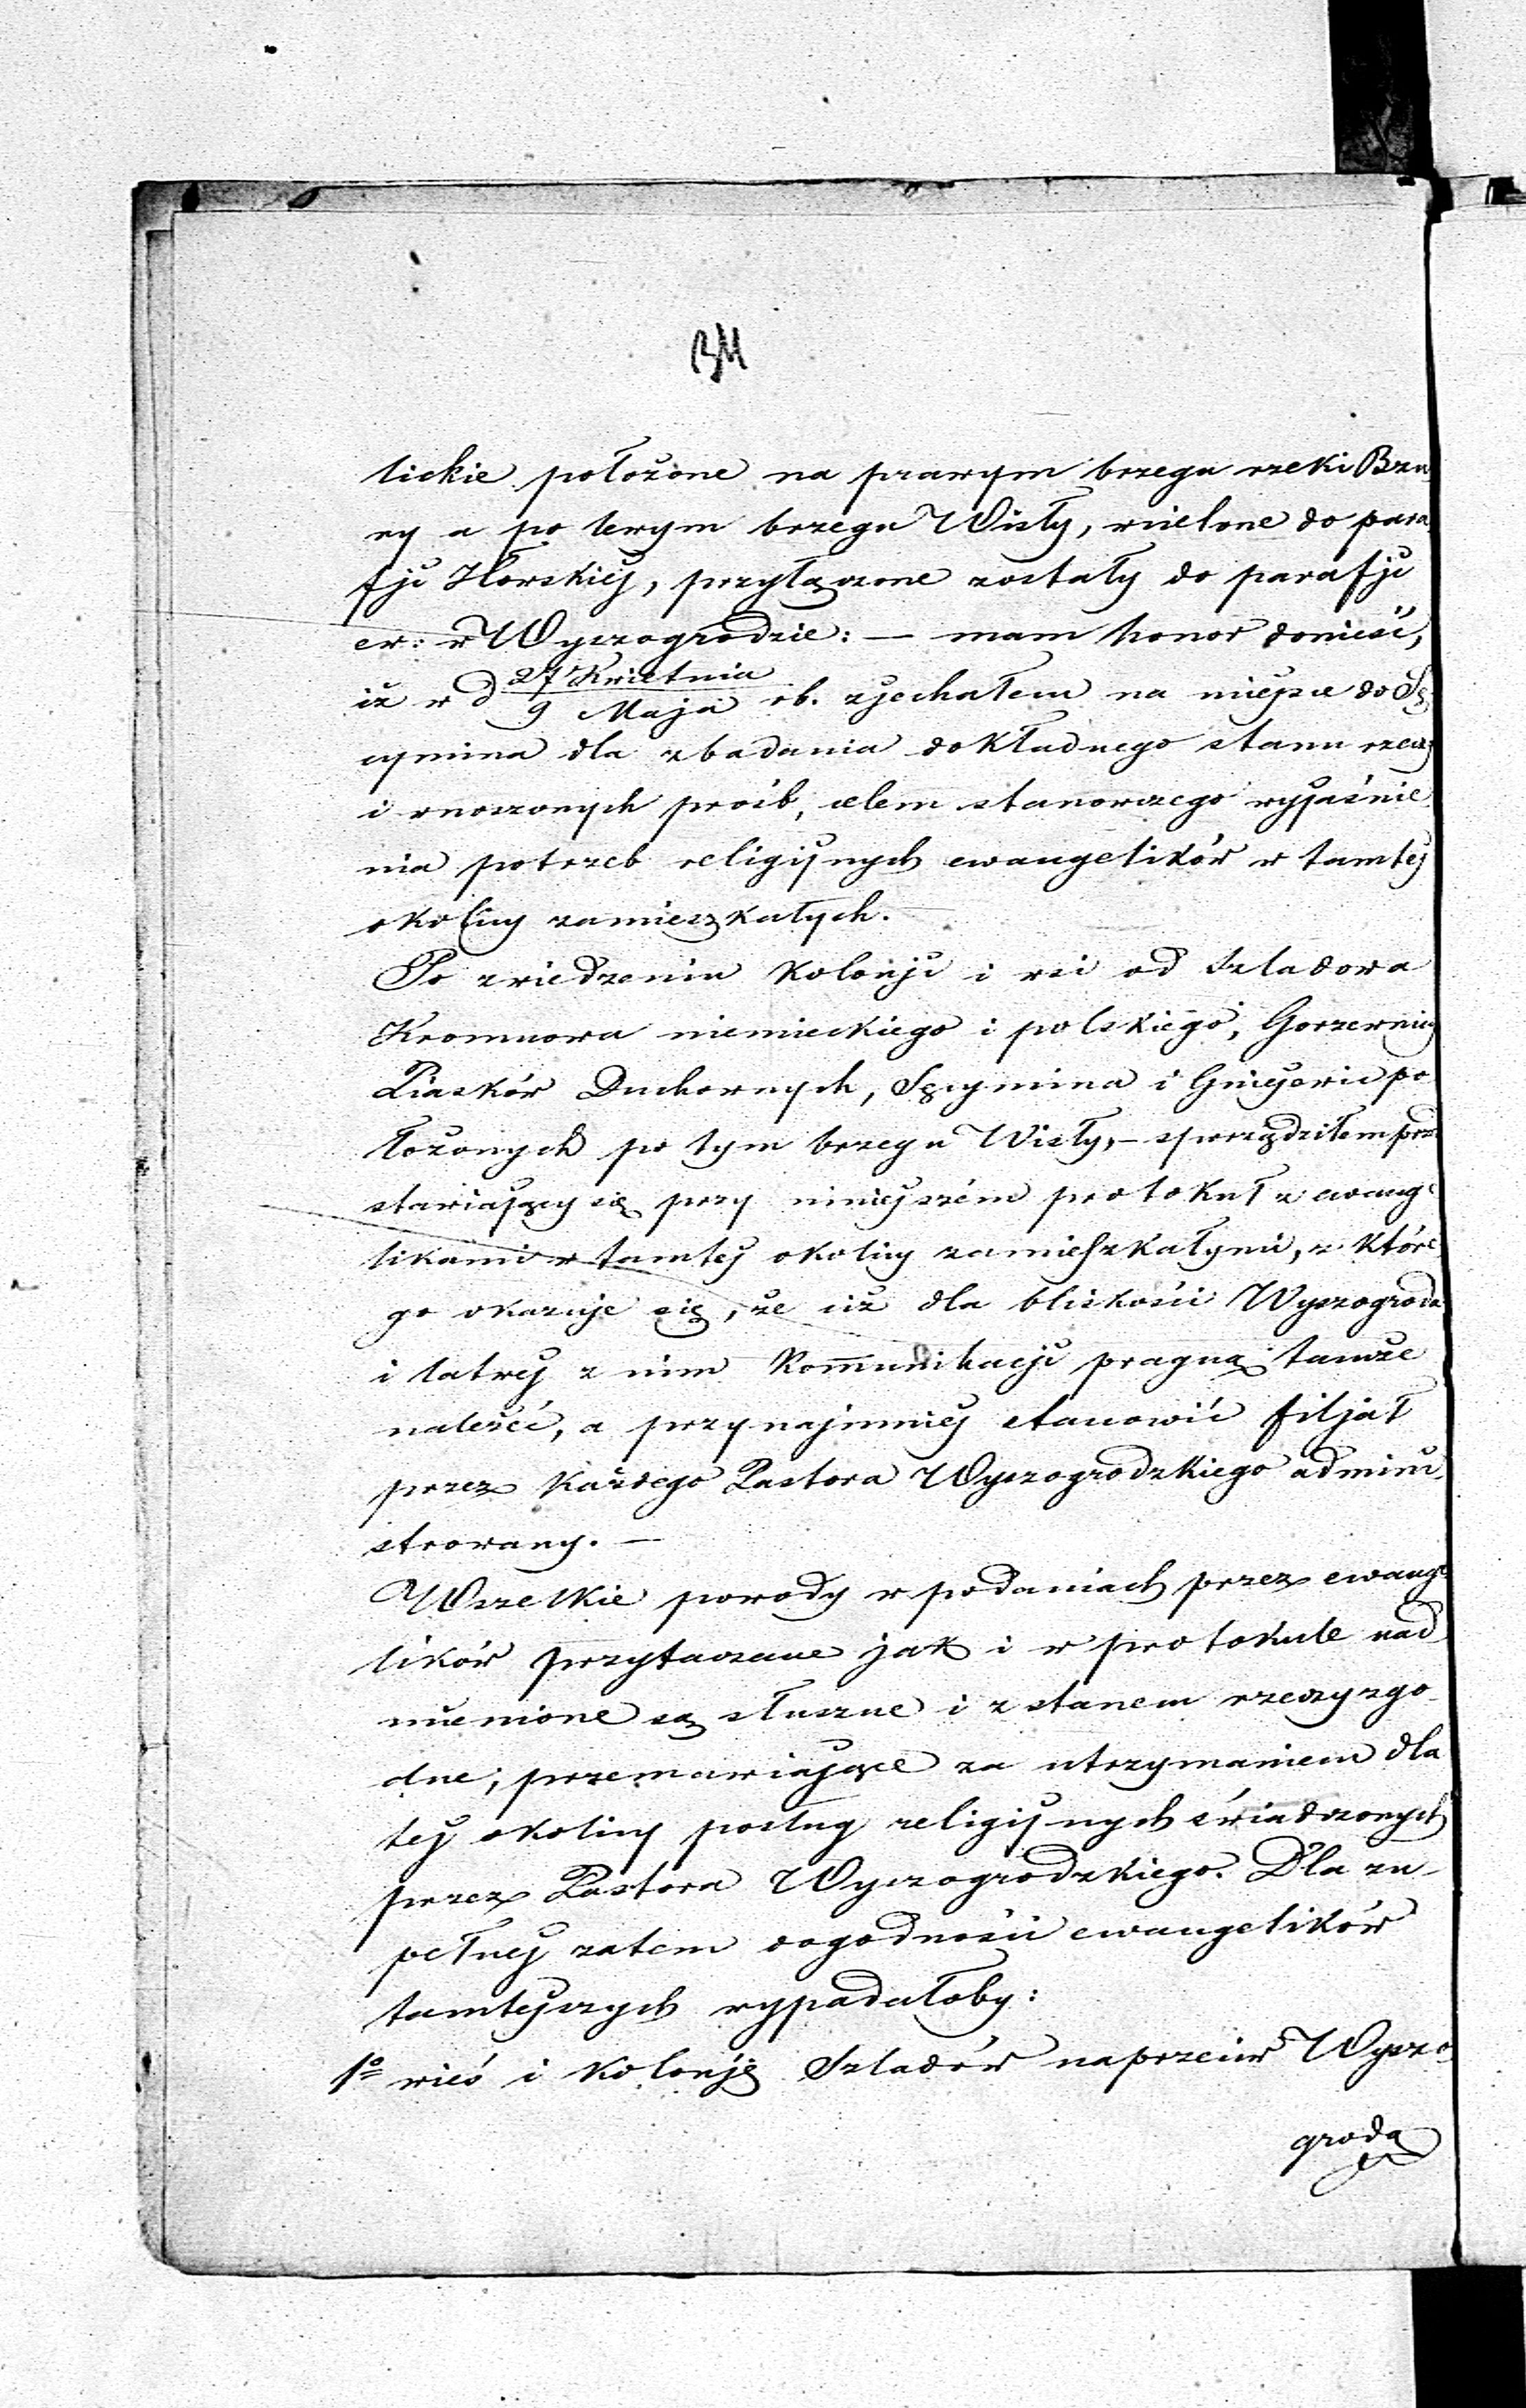 BM
lickie położone na prawym brzegu rzeki Bzu
ry a po lewym brzegu Wisły, wcielone do para
fji Iłowskiej, przyłączone zostały do parafji
ew: w Wyszogrodzie: — mam honor donieść,
iż w d 27 Kwietnia
9 Maja rb. zjechałem na miejsce do Sę
cymina dla zbadania dokładnego stanu rzeczy
i wnoszonych próśb, celem stanowczego wyjaśnie
nia potrzeb religijnych ewangelików w tamtej
okolicy zamieszkałych.
Po zwiedzeniu kolonji i wsi od Szladowa
Kromnowa niemieckiego i polskiego, Gorzewnicy
Piasków Duchownych, Sęcymina i Gniewniewic po
łożonych po tym brzegu Wisły, — sporządziłem prze
stawiający się przy niniejszém protokuł z ewange
likami w tamtej okolicy zamieszkałymi, z które
go okazuje się, że iż dla bliskości Wyszogroda
i łatwej z nim Kommunikacji pragną tamże
należéć, a przynajmniej stanowić filjał
przez każdego Pastora Wyszogrodzkiego admini
strowany. —
Wszelkie powody w podaniach przez ewange
lików przytaczane jak i w protokule nad
mienione są słuszne i z stanem rzeczy zgo
dne, przemawiające za utrzymaniem dla
tej okolicy posług religijnych świadczonych
przez Pastora Wyszogrodzkiego. Dla zu-
pełnej zatem dogodności ewangelików
tamtejszych wypadałoby:
1º wieś i kolonję Szladów naprzeciw Wyszo
groda